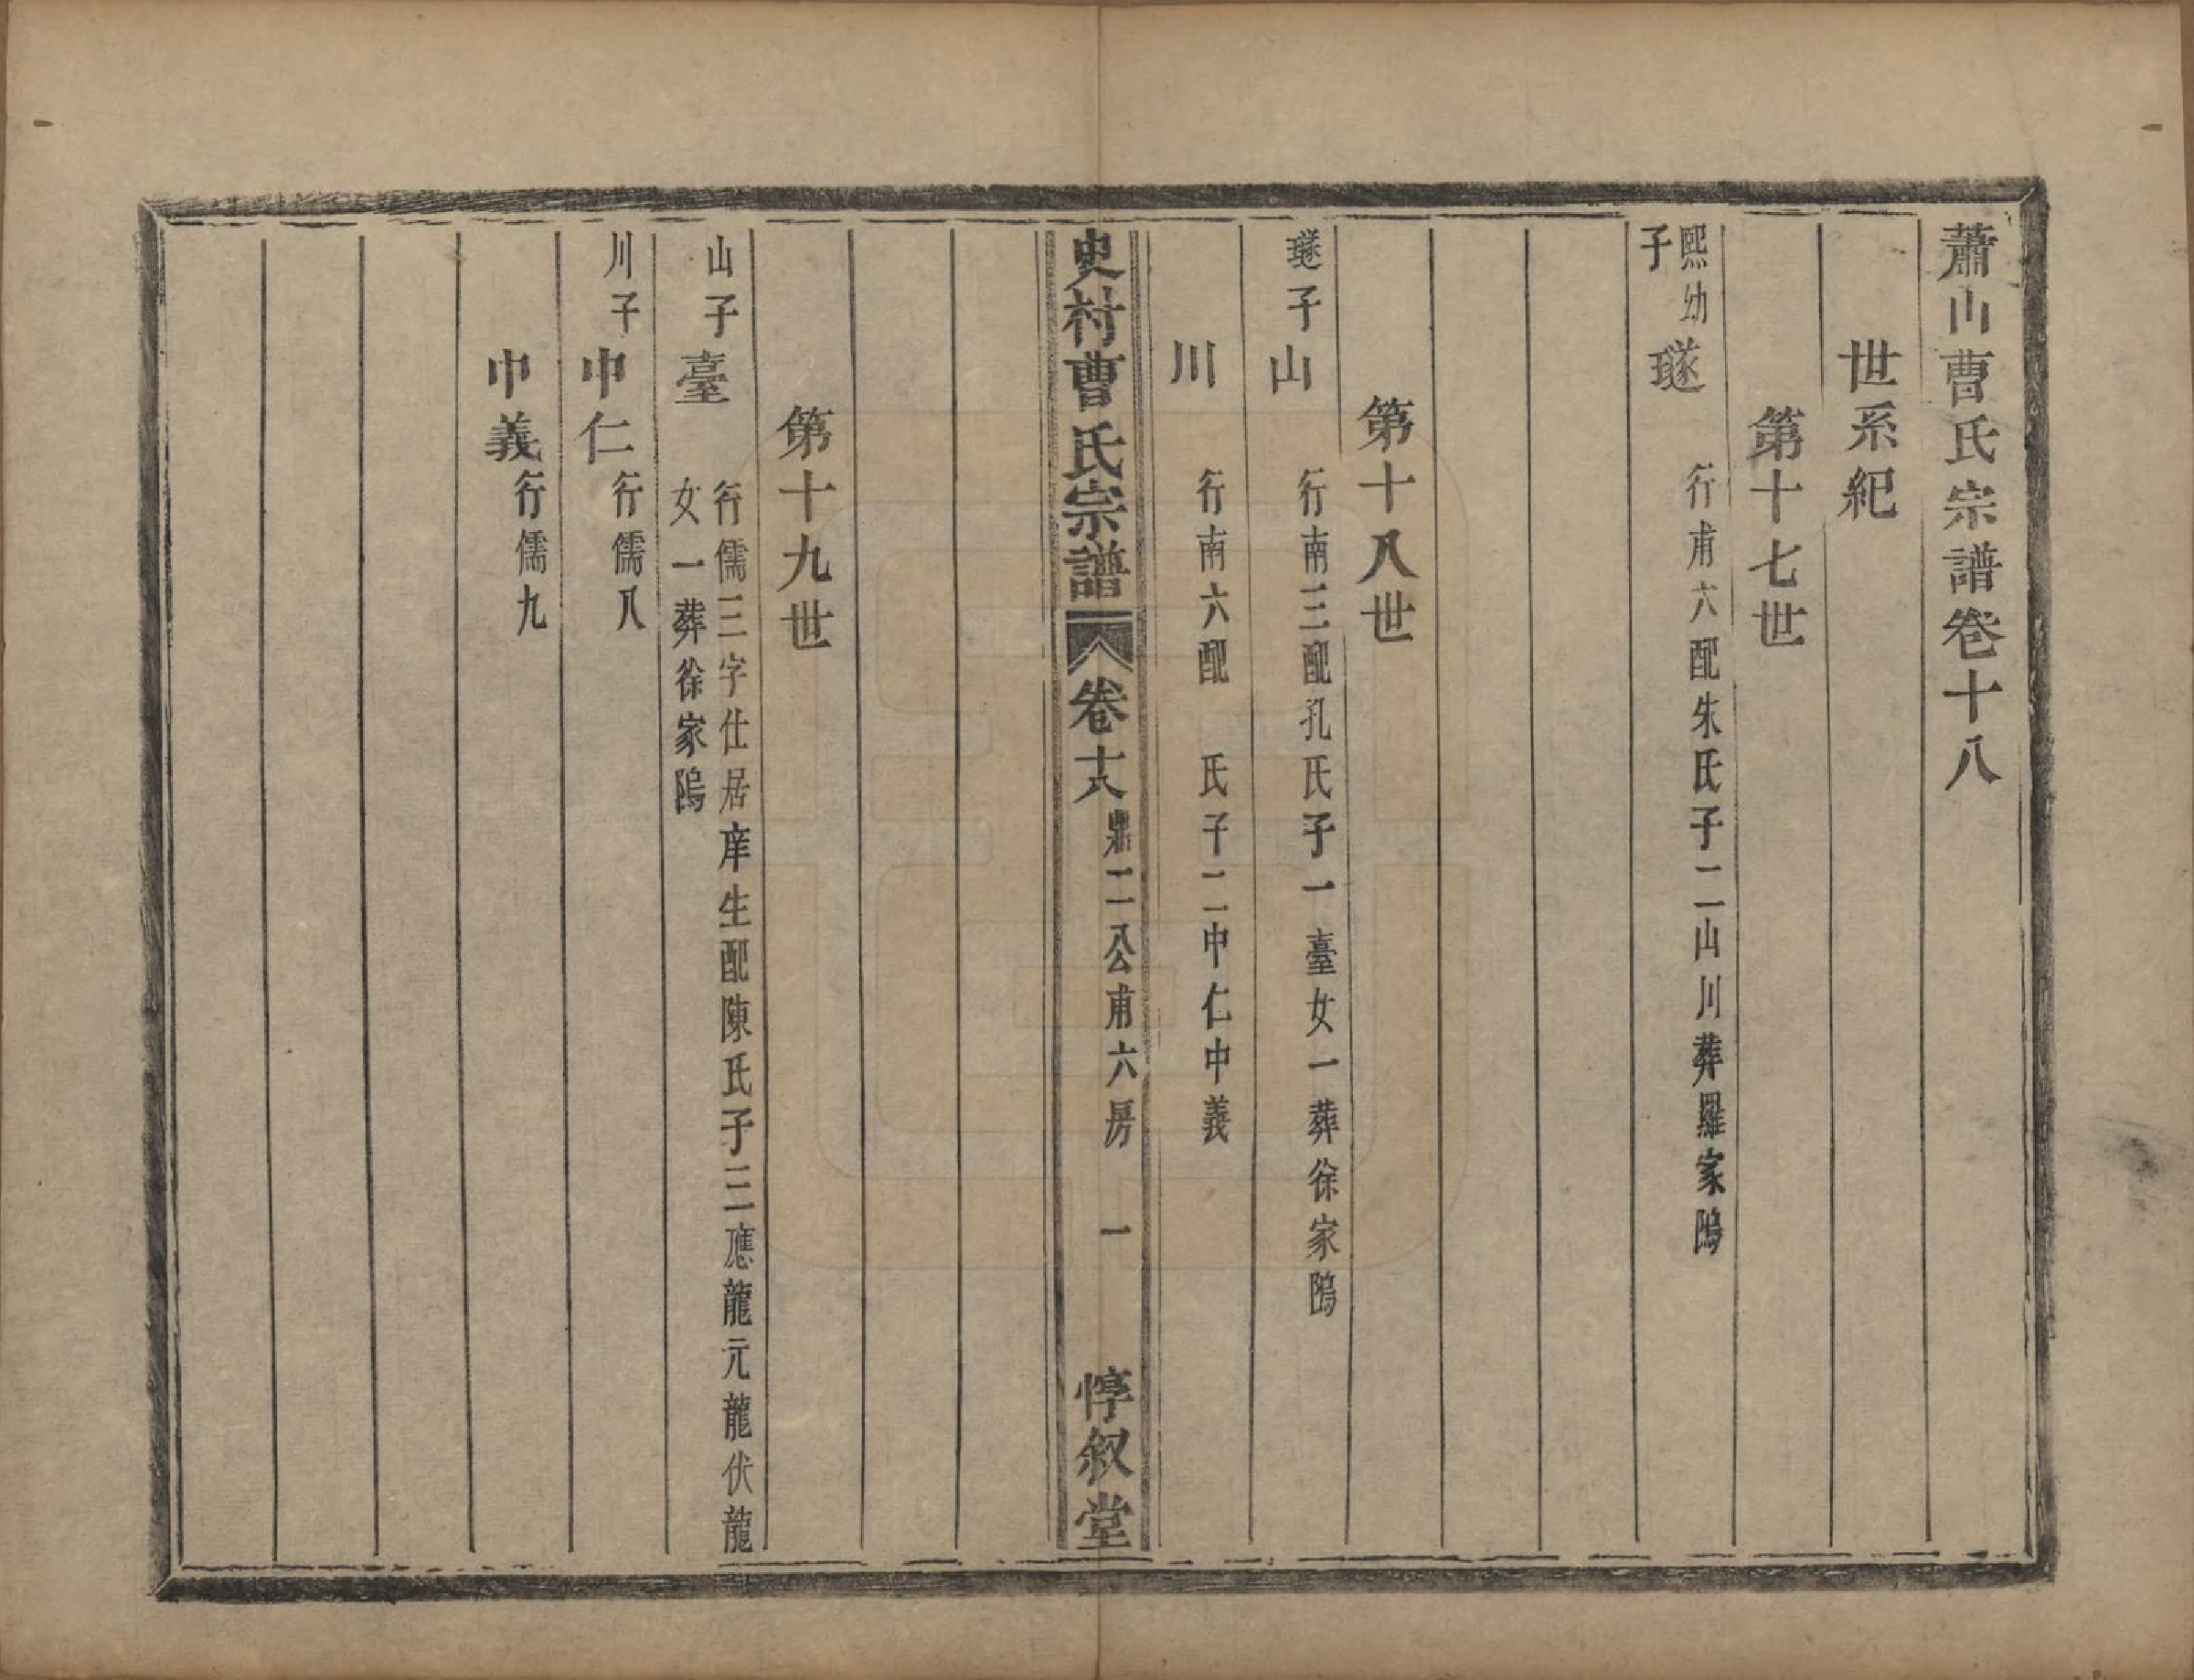 蕭山曹氏宗譜卷十八
世系紀
第十七世
熙幼子
璲
行甫六配朱氏子二山川葬羅家鴎
第十八世
璲子
山
行南三配孔氏子一臺女一葬徐家鴎
川
行南六配　氏子二中仁中義
史村曹氏宗譜
卷十八
鼎二公甫六房
一
惇叙堂
第十九世
山子
臺
行儒三字仕居庠生配陳氏子三應龍元龍伏龍
女一葬徐家隖
川子
中仁
行儒八
中義
行儒九